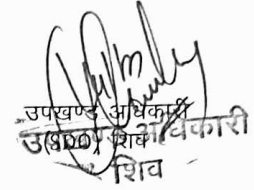 उपखण्ड अधिकारी
(SDO) शिव
उपखण्ड अधिकारी
शिव